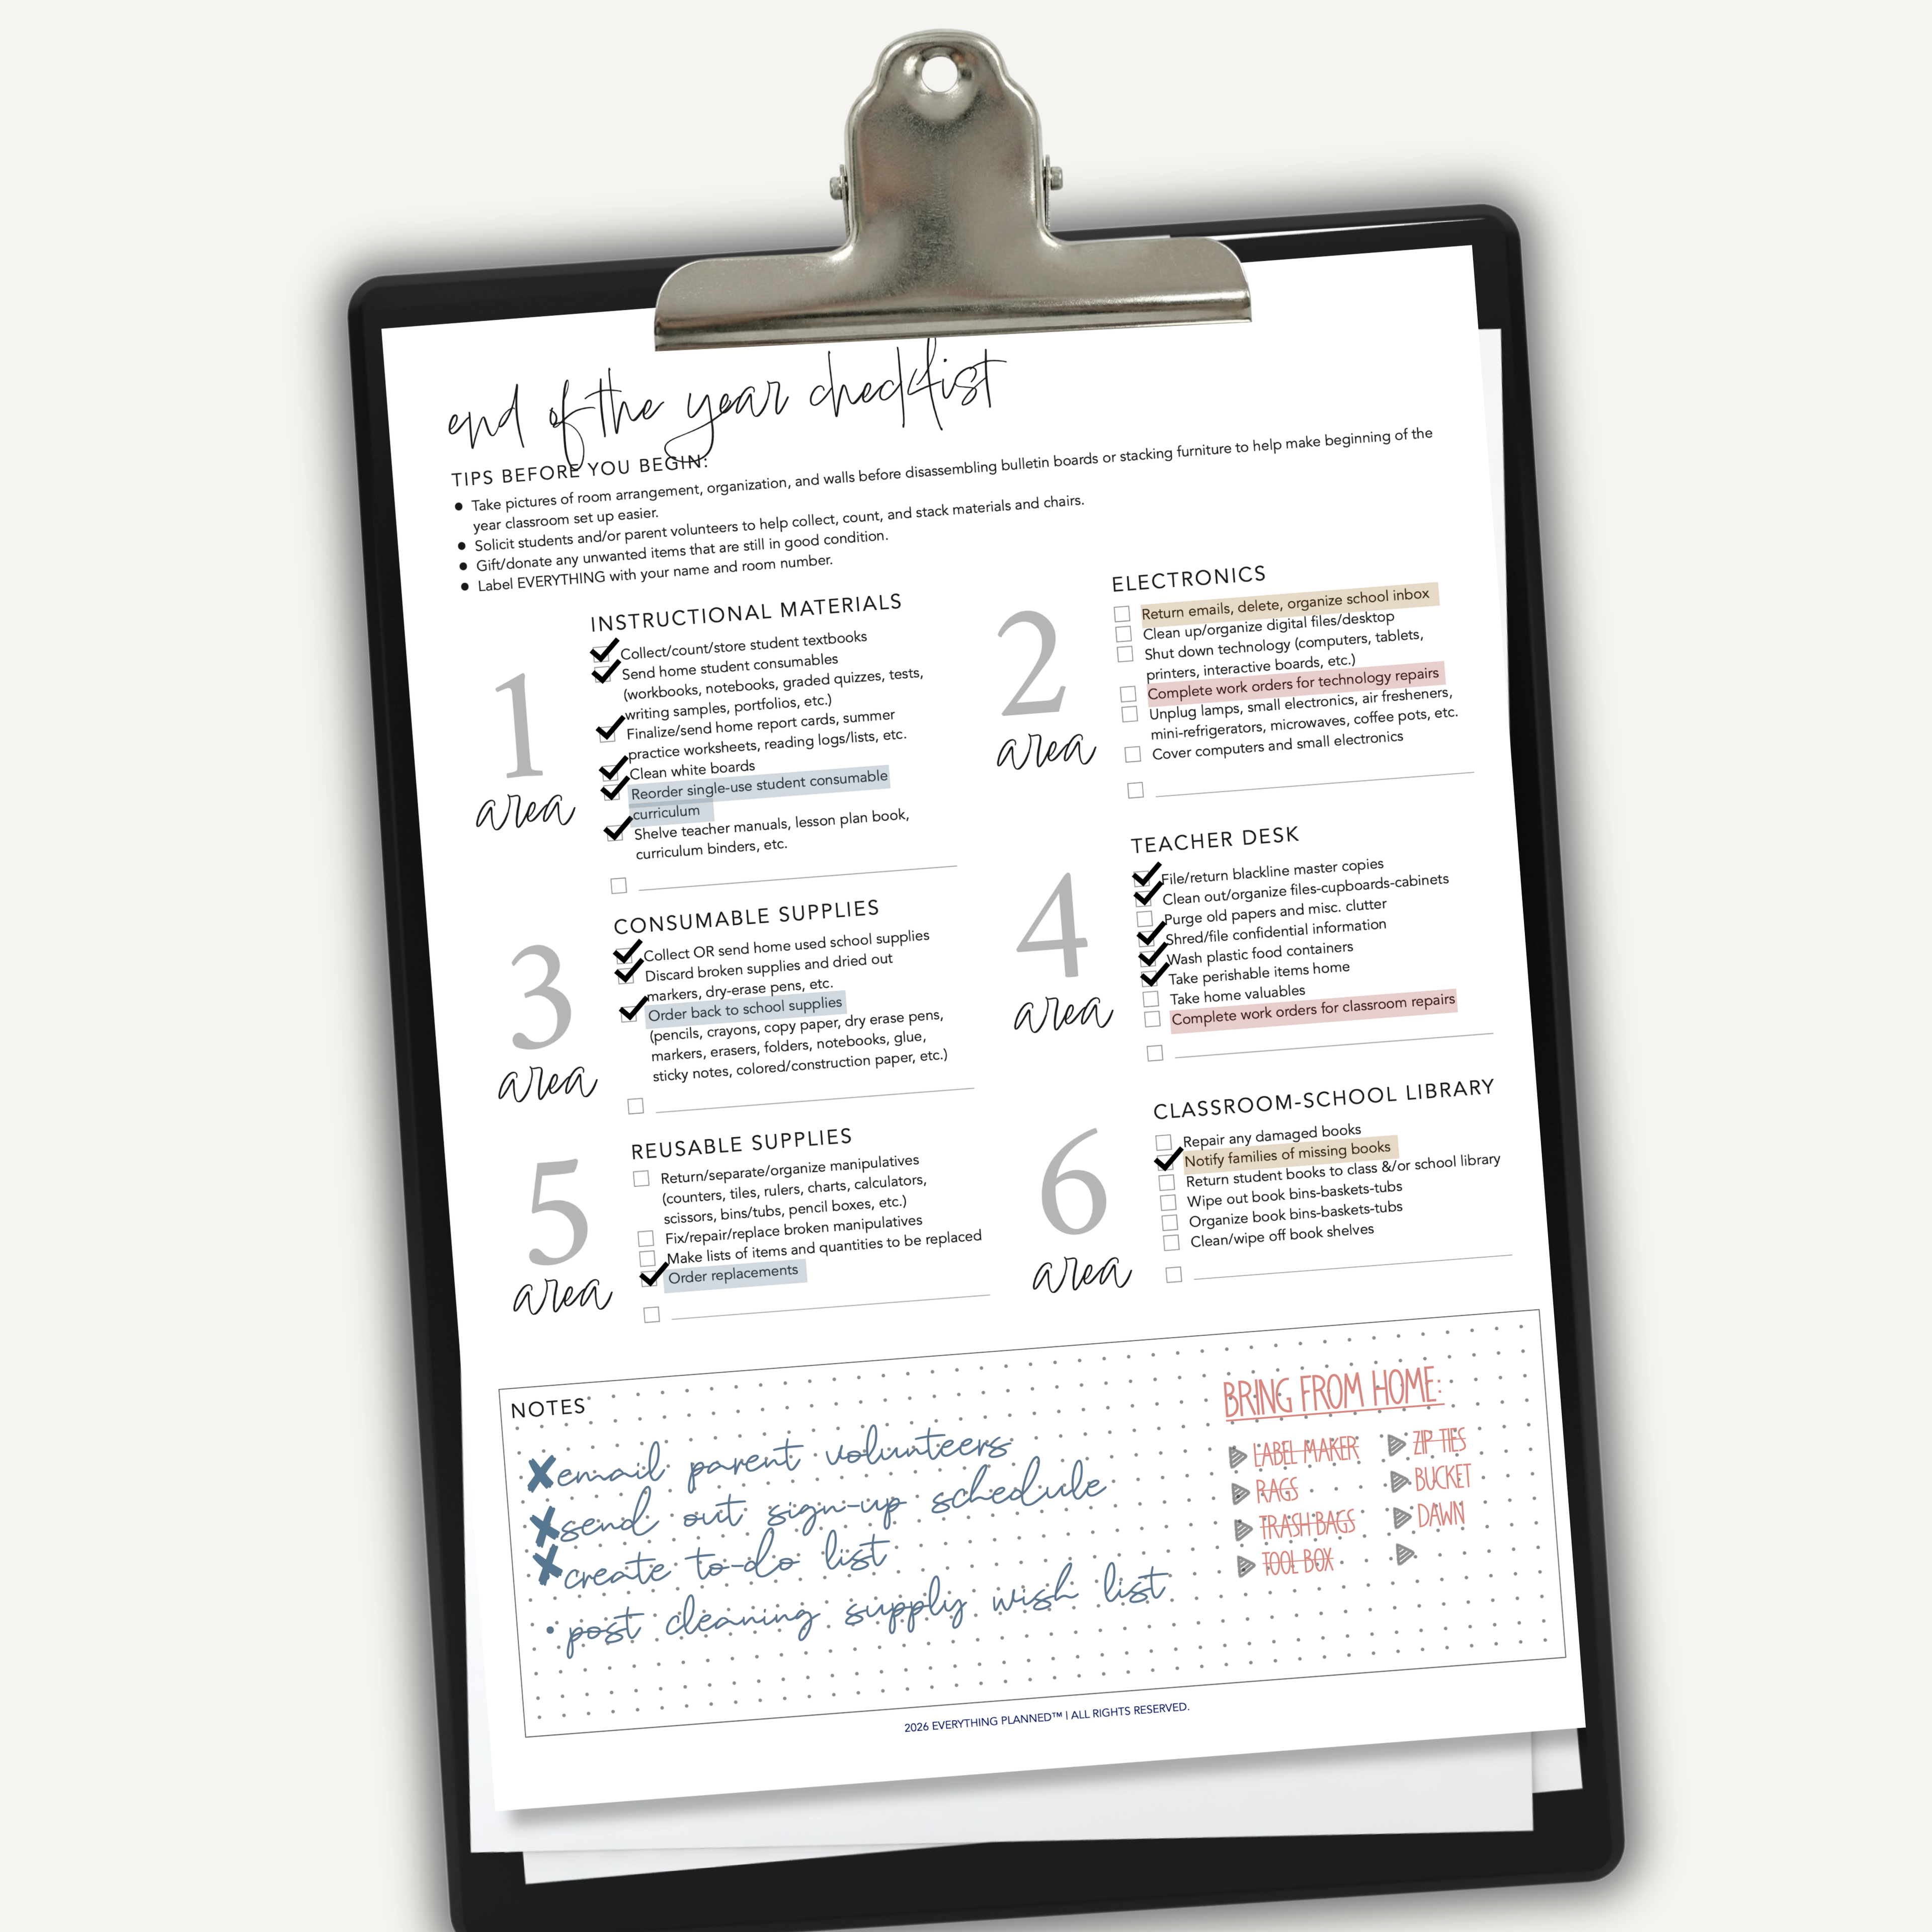 end of the year checklist
TIPS BEFORE YOU BEGIN:
● Take pictures of room arrangement, organization, and walls before disassembling bulletin boards or stacking furniture to help make beginning of the
year classroom set up easier.
● Solicit students and/or parent volunteers to help collect, count, and stack materials and chairs.
● Gift/donate any unwanted items that are still in good condition.
● Label EVERYTHING with your name and room number.
1
area
INSTRUCTIONAL MATERIALS
Collect/count/store student textbooks
Send home student consumables
(workbooks, notebooks, graded quizzes, tests,
writing samples, portfolios, etc.)
Finalize/send home report cards, summer
practice worksheets, reading logs/lists, etc.
Clean white boards
Reorder single-use student consumable
curriculum
Shelve teacher manuals, lesson plan book,
curriculum binders, etc.
2
area
ELECTRONICS
Return emails, delete, organize school inbox
Clean up/organize digital files/desktop
Shut down technology (computers, tablets,
printers, interactive boards, etc.)
Complete work orders for technology repairs
Unplug lamps, small electronics, air fresheners,
mini-refrigerators, microwaves, coffee pots, etc.
Cover computers and small electronics
3
area
CONSUMABLE SUPPLIES
Collect OR send home used school supplies
Discard broken supplies and dried out
markers, dry-erase pens, etc.
Order back to school supplies
(pencils, crayons, copy paper, dry erase pens,
markers, erasers, folders, notebooks, glue,
sticky notes, colored/construction paper, etc.)
4
area
TEACHER DESK
File/return blackline master copies
Clean out/organize files-cupboards-cabinets
Purge old papers and misc. clutter
Shred/file confidential information
Wash plastic food containers
Take perishable items home
Take home valuables
Complete work orders for classroom repairs
5
area
REUSABLE SUPPLIES
Return/separate/organize manipulatives
(counters, tiles, rulers, charts, calculators,
scissors, bins/tubs, pencil boxes, etc.)
Fix/repair/replace broken manipulatives
Make lists of items and quantities to be replaced
Order replacements
6
area
CLASSROOM-SCHOOL LIBRARY
Repair any damaged books
Notify families of missing books
Return student books to class &/or school library
Wipe out book bins-baskets-tubs
Organize book bins-baskets-tubs
Clean/wipe off book shelves
NOTES
email parent volunteers
send out sign-up schedule
create to-do list
• post cleaning supply wish list
BRING FROM HOME:
LABEL MAKER
RAGS
TRASH BAGS
TOOL BOX
ZIP TIES
BUCKET
DAWN
2026 EVERYTHING PLANNED™ | ALL RIGHTS RESERVED.